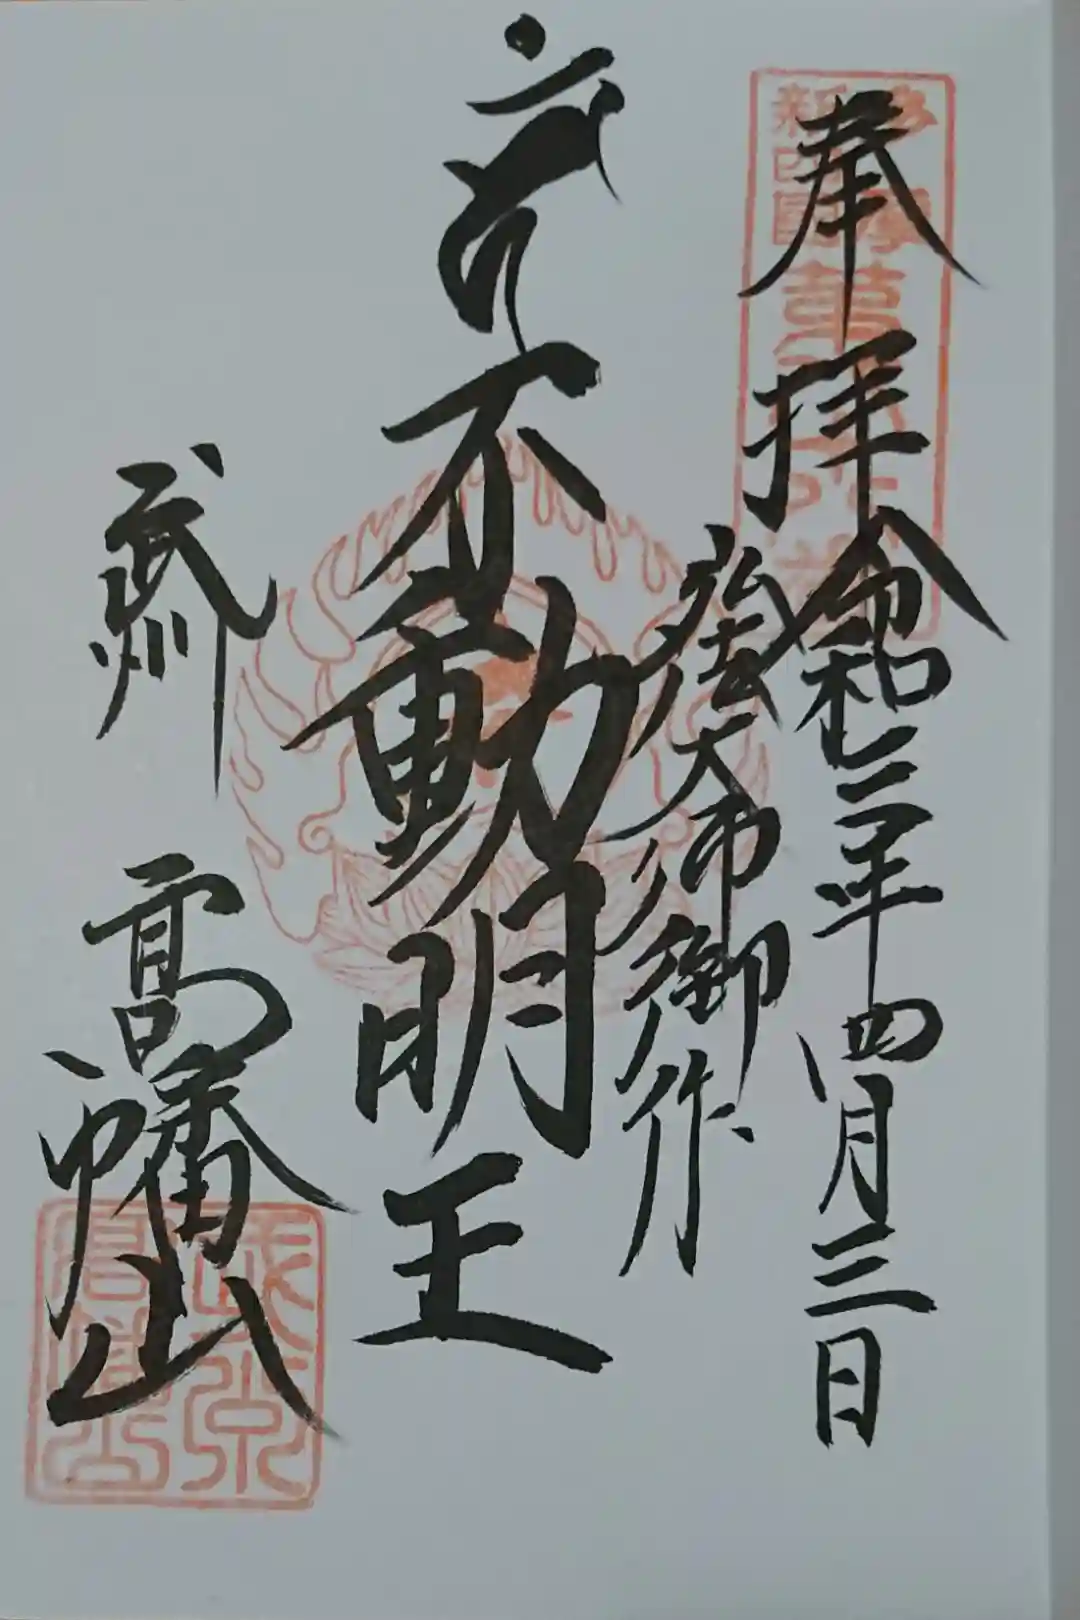 奉拝
令和三年四月三日
弘法大師御作
不動明王
武州
高幡山